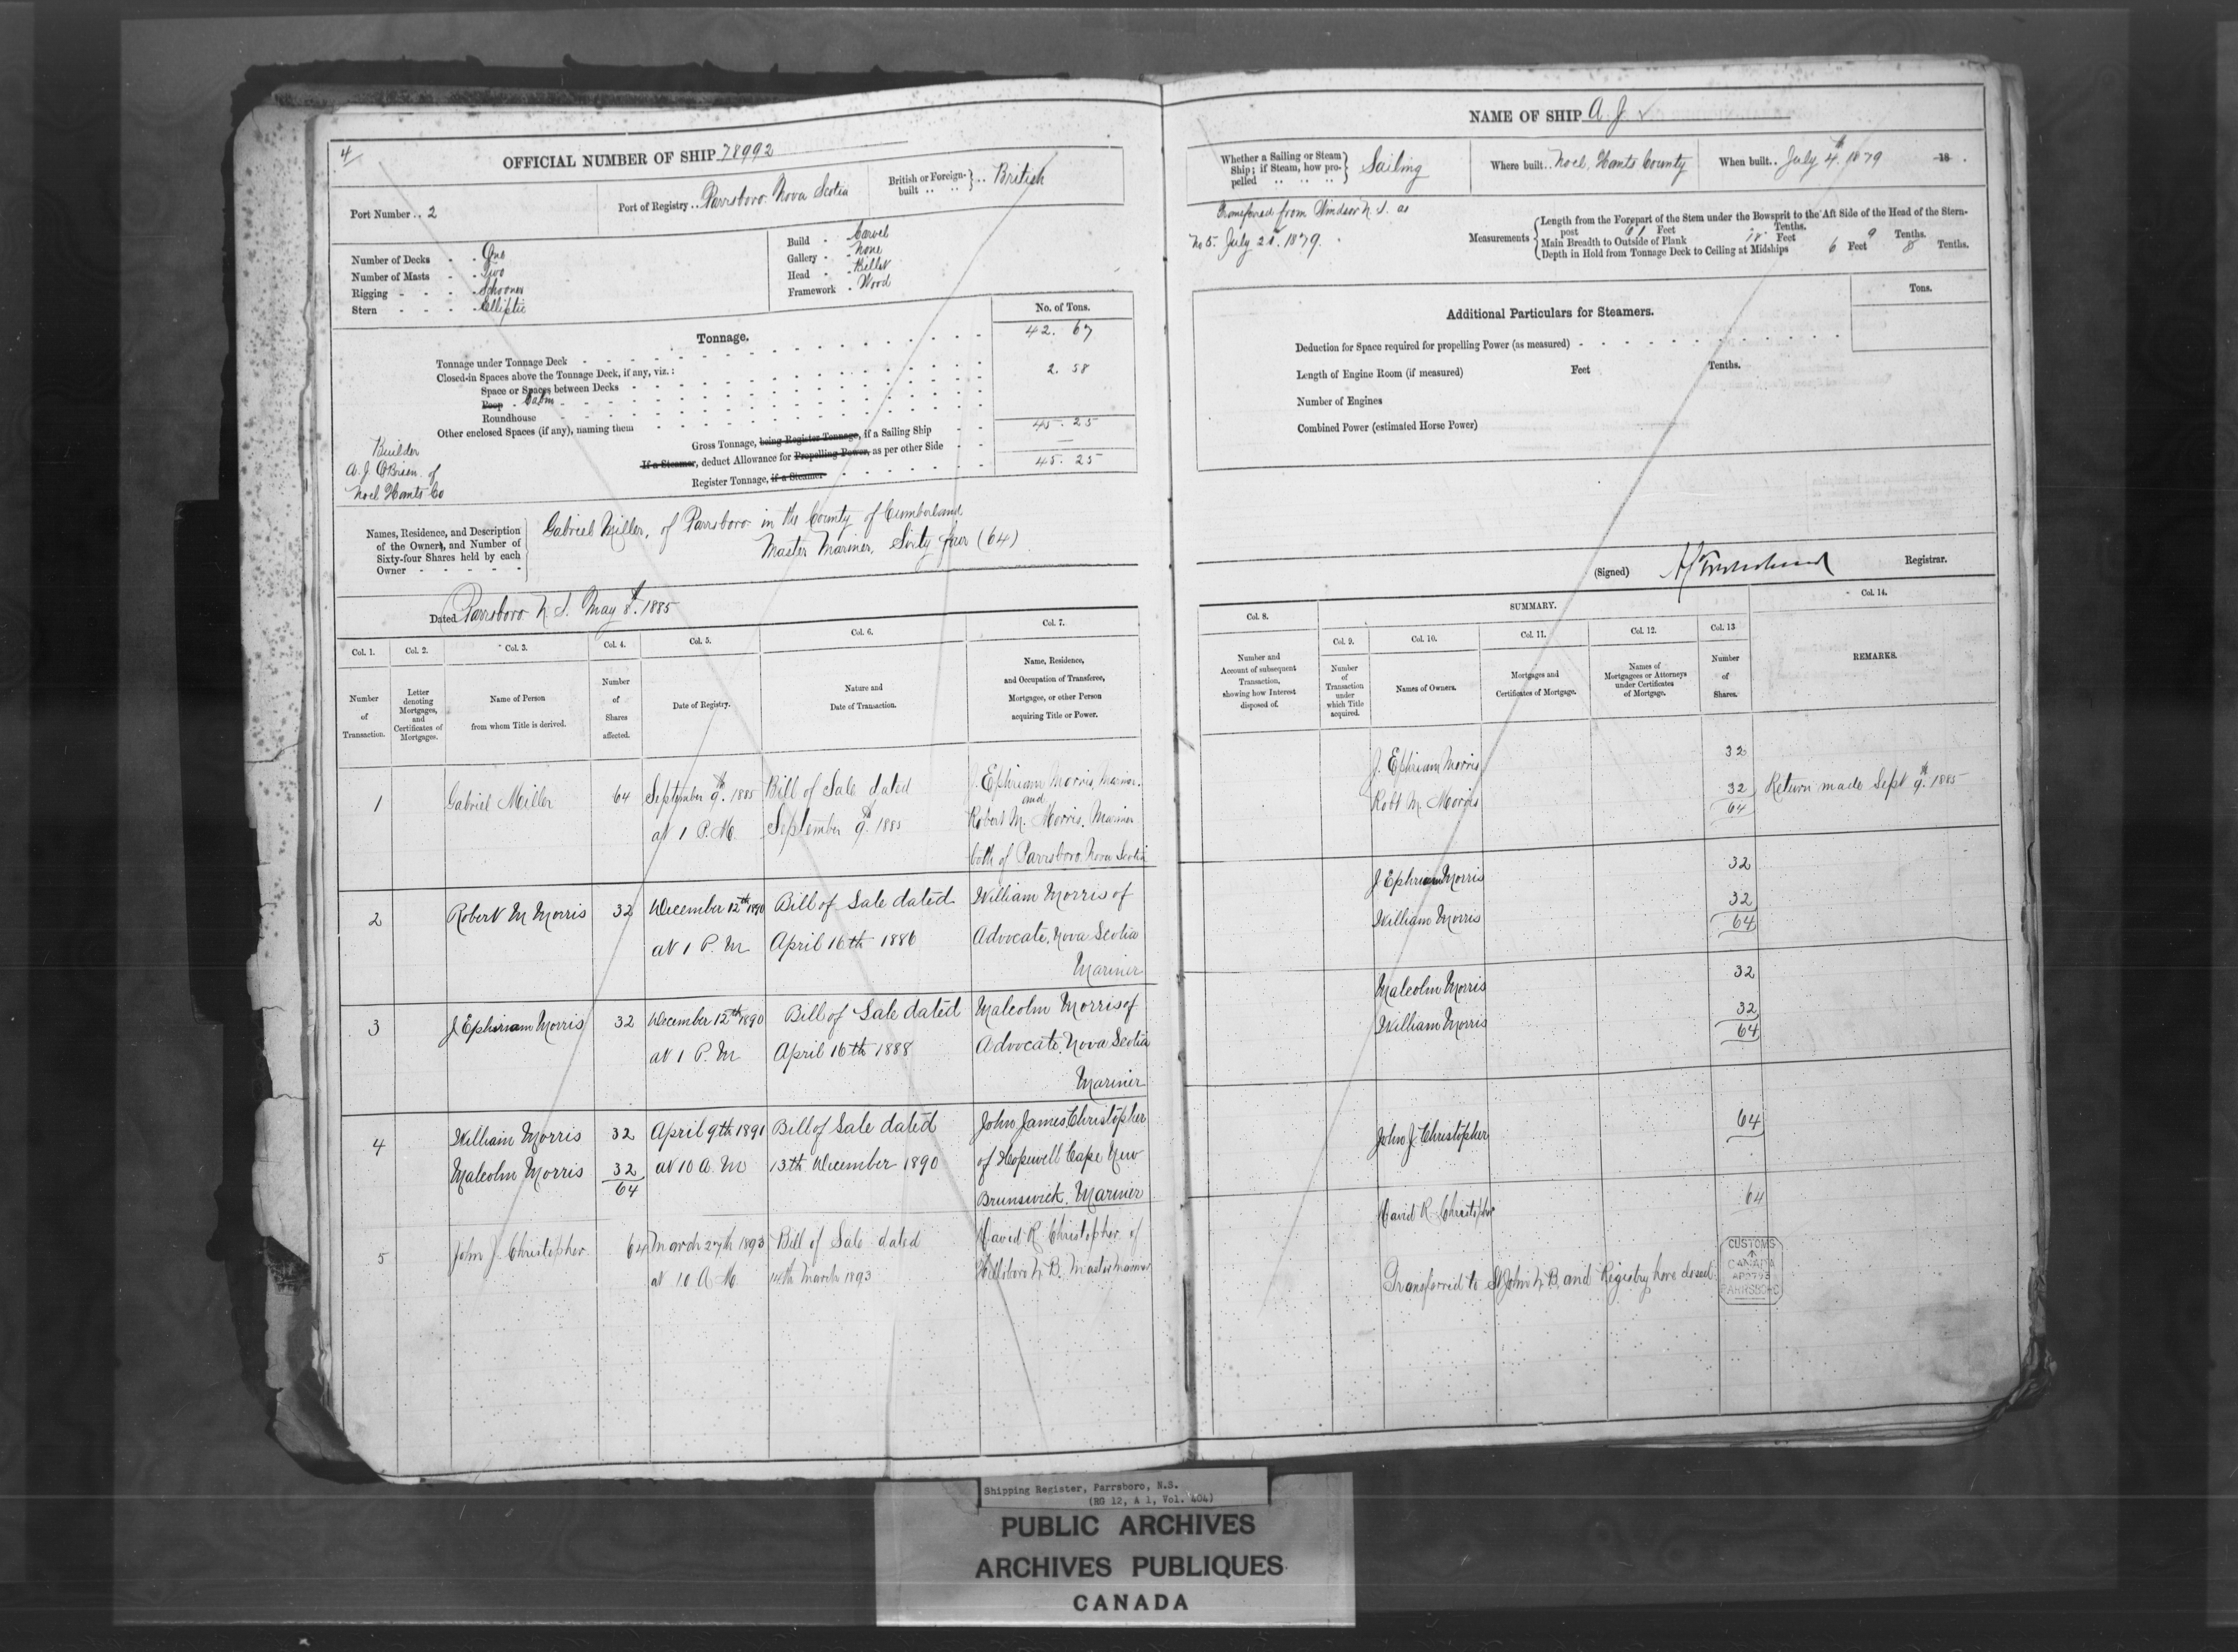 4
OFFICIAL NUMBER OF SHIP 78992
Port Number .. 2
Port of Registry .. Parrsboro Nova Scotia
British or Foreign-built .. .. } .. British
Number of Decks - - One
Number of Masts - - Two
Rigging - - - - Schooner
Stern - - - - Elliptic
Build - - Carvel
Gallery - - None
Head - - Billet
Framework - Wood
No. of Tons.
Tonnage.
Tonnage under Tonnage Deck 42. 67
Closed-in Spaces above the Tonnage Deck, if any, viz.:
Space or Spaces between Decks
Poop - Cabin 2. 58
Roundhouse
Other enclosed Spaces (if any), naming them
Gross Tonnage, being Register Tonnage, if a Sailing Ship 45. 25
If a Steamer, deduct Allowance for Propelling Power, as per other Side —
Register Tonnage, if a Steamer 45. 25
Builder
A. J. O'Brien of
Noel Hants Co
Names, Residence, and Description
of the Owners, and Number of
Sixty-four Shares held by each
Owner - - - - -
Gabriel Miller, of Parrsboro in the County of Cumberland
Master Mariner, Sixty four (64)
Dated Parrsboro N. S. May 8th. 1885
Col. 1. Col. 2. Col. 3. Col. 4. Col. 5. Col. 6. Col. 7.
Number
of
Transaction.
Letter
denoting
Mortgages,
and
Certificates of
Mortgages.
Name of Person
from whom Title is derived.
Number
of
Shares
affected.
Date of Registry.
Nature and
Date of Transaction.
Name, Residence,
and Occupation of Transferee,
Mortgagee, or other Person
acquiring Title or Power.
1 Gabriel Miller 64 September 9th. 1885 Bill of Sale dated J. Ephriam Morris, Mariner.
and
at 1 P. M. September 9th 1885 Robert M. Morris. Mariner
both of Parrsboro. Nova Scotia
2 Robert M Morris 32 December 12th 1890 Bill of Sale dated William Morris of
at 1 P. M April 16th 1886 Advocate, Nova Scotia
Mariner
3 J. Ephriam Morris 32 December 12th 1890 Bill of Sale dated Malcolm Morris of
at 1 P. M April 16th 1888 Advocate. Nova Scotia
Mariner
4 William Morris 32 April 9th 1891 Bill of Sale dated John James Christopher
Malcolm Morris 32 at 10 A. M 13th December 1890 of Hopewell Cape New
64 Brunswick. Mariner
5 John J. Christopher. 64 March 27th 1893 Bill of Sale dated David R. Christopher of
at 10 A M. 14th March 1893 Hillsboro N. B. Master Mariner
NAME OF SHIP A. J.
Whether a Sailing or Steam
Ship; if Steam, how pro-
pelled .. .. .. } Sailing
Where built .. Noel, Hants County
When built .. July 4th. 1879 -18 .
Transferred from Windsor N. S. as
No 5. July 21st. 1879.
Measurements
Length from the Forepart of the Stem under the Bowsprit to the Aft Side of the Head of the Stern-
post 61 Feet Tenths.
Main Breadth to Outside of Plank 18 Feet 9 Tenths.
Depth in Hold from Tonnage Deck to Ceiling at Midships 6 Feet 8 Tenths.
Tons.
Additional Particulars for Steamers.
Deduction for Space required for propelling Power (as measured)
Length of Engine Room (if measured) Feet Tenths.
Number of Engines
Combined Power (estimated Horse Power)
(Signed) Registrar.
Col. 8. SUMMARY. Col. 14.
Col. 9. Col. 10. Col. 11. Col. 12. Col. 13
Number and
Account of subsequent
Transaction,
showing how Interest
disposed of.
Number
of
Transaction
under
which Title
acquired.
Names of Owners.
Mortgages and
Certificates of Mortgage.
Names of
Mortgagees or Attorneys
under Certificates
of Mortgage.
Number
of
Shares.
REMARKS.
J. Ephriam Morris 32
Robt M. Morris 32 Return made Sept 9th. 1885
64
J Ephriam Morris 32
William Morris 32
64
Malcolm Morris 32
William Morris 32
64
John J. Christopher 64
David R. Christopher 64
Transferred to St John N. B. and Registry here closed
CUSTOMS
CANADA
PARRSBORO
Shipping Register, Parrsboro, N.S.
(RG 12, A 1, Vol. 404)
PUBLIC ARCHIVES
ARCHIVES PUBLIQUES
CANADA